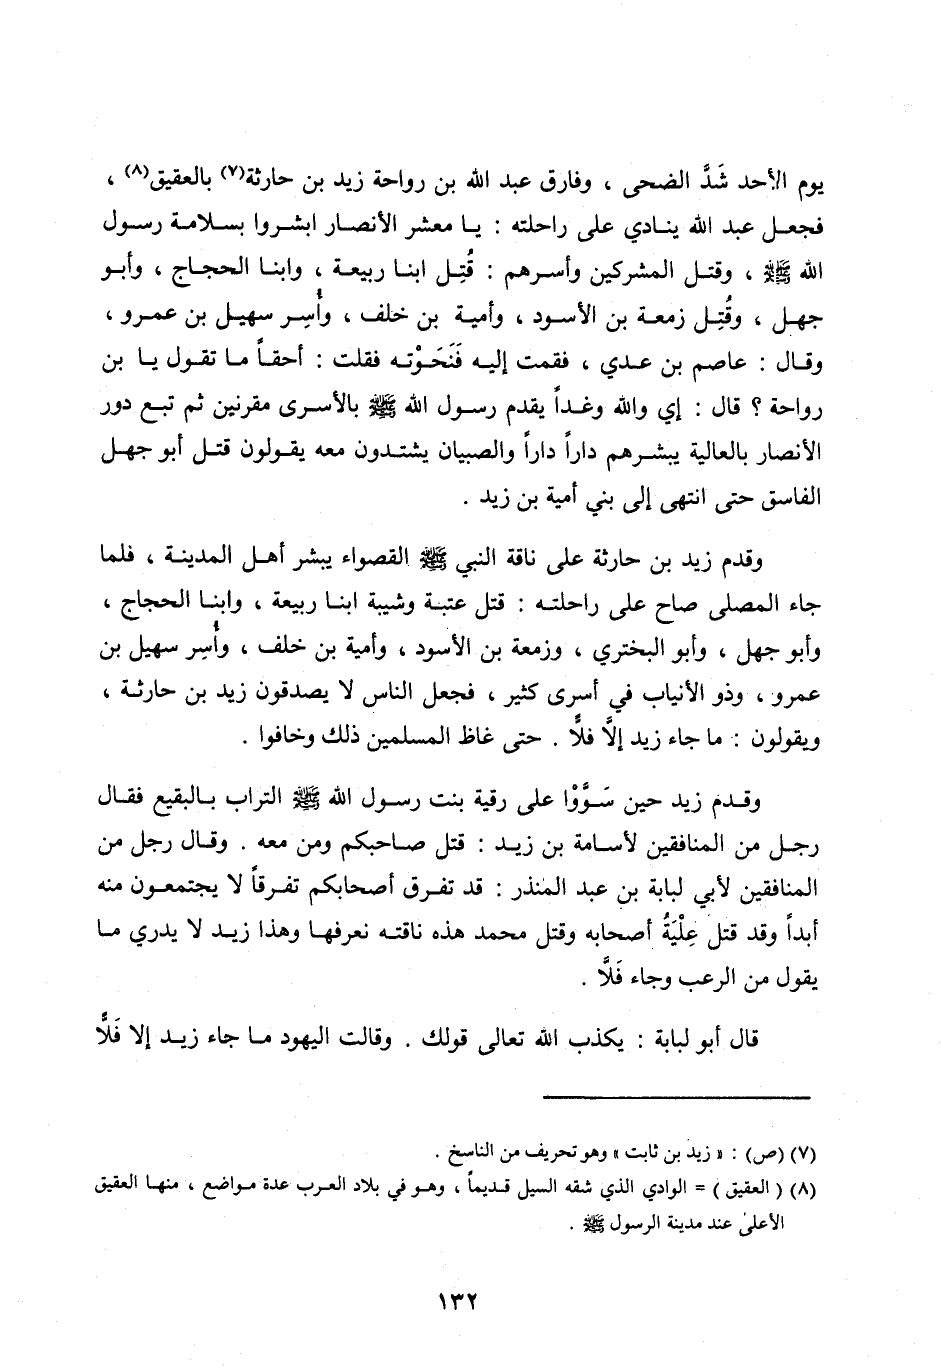 يوم الأحد شَدَّ الضحى ، وفارق عبد الله بن رواحة زيد بن حارثة(٧) بالعقيق(٨) ،
فجعل عبد الله ينادي على راحلته : يا معشر الأنصار ابشروا بسلامة رسول
الله ﷺ ، وقتل المشركين وأسرهم : قُتِل ابنا ربيعة ، وابنا الحجاج ، وأبو
جهل ، وقُتِل زمعة بن الأسود ، وأمية بن خلف ، وأُسِر سهيل بن عمرو ،
وقال : عاصم بن عدي ، فقمت إليه فَنَحَوْته فقلت : أحقاً ما تقول يا بن
رواحة ؟ قال : إي والله وغداً يقدم رسول الله ﷺ بالأسرى مقرنين ثم تبع دور
الأنصار بالعالية يبشرهم داراً داراً والصبيان يشتدون معه يقولون قتل أبو جهل
الفاسق حتى انتهى إلى بني أمية بن زيد .
وقدم زيد بن حارثة على ناقة النبي ﷺ القصواء يبشر أهل المدينة ، فلما
جاء المصلى صاح على راحلته : قتل عتبة وشيبة ابنا ربيعة ، وابنا الحجاج ،
وأبو جهل ، وأبو البختري ، وزمعة بن الأسود ، وأمية بن خلف ، وأُسِر سهيل بن
عمرو ، وذو الأنياب في أسرى كثير ، فجعل الناس لا يصدقون زيد بن حارثة ،
ويقولون : ما جاء زيد إلَّا فلًّا . حتى غاظ المسلمين ذلك وخافوا .
وقدم زيد حين سَوَّوْا على رقية بنت رسول الله ﷺ التراب بالبقيع فقال
رجل من المنافقين لأسامة بن زيد : قتل صاحبكم ومن معه . وقال رجل من
المنافقين لأبي لبابة بن عبد المنذر : قد تفرق أصحابكم تفرقاً لا يجتمعون منه
أبداً وقد قتل عِلْيَةُ أصحابه وقتل محمد هذه ناقته نعرفها وهذا زيد لا يدري ما
يقول من الرعب وجاء فَلًّا .
قال أبو لبابة : يكذب الله تعالى قولك . وقالت اليهود ما جاء زيد إلا فَلًّا
(٧) (ص) : « زيد بن ثابت » وهو تحريف من الناسخ .
(٨) ( العقيق ) = الوادي الذي شقه السيل قديماً ، وهو في بلاد العرب عدة مواضع ، منها العقيق
الأعلىٰ عند مدينة الرسول ﷺ .
١٣٢